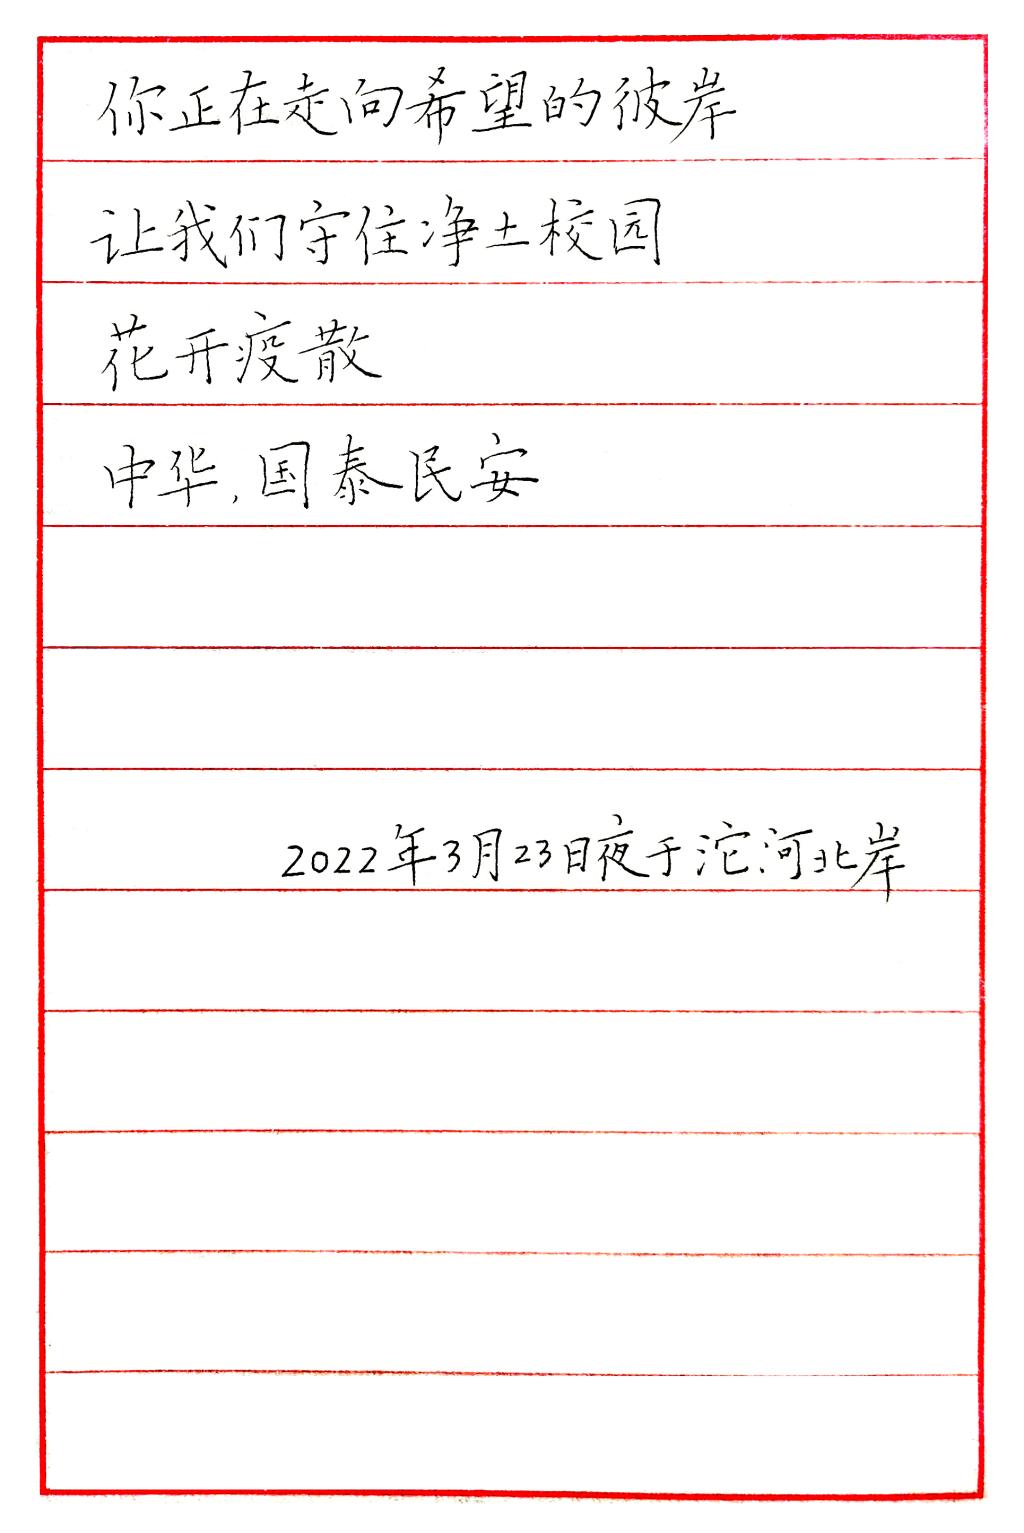 你正在走向希望的彼岸
让我们守住净土校园
花开疫散
中华,国泰民安
2022年3月23日夜于沱河北岸